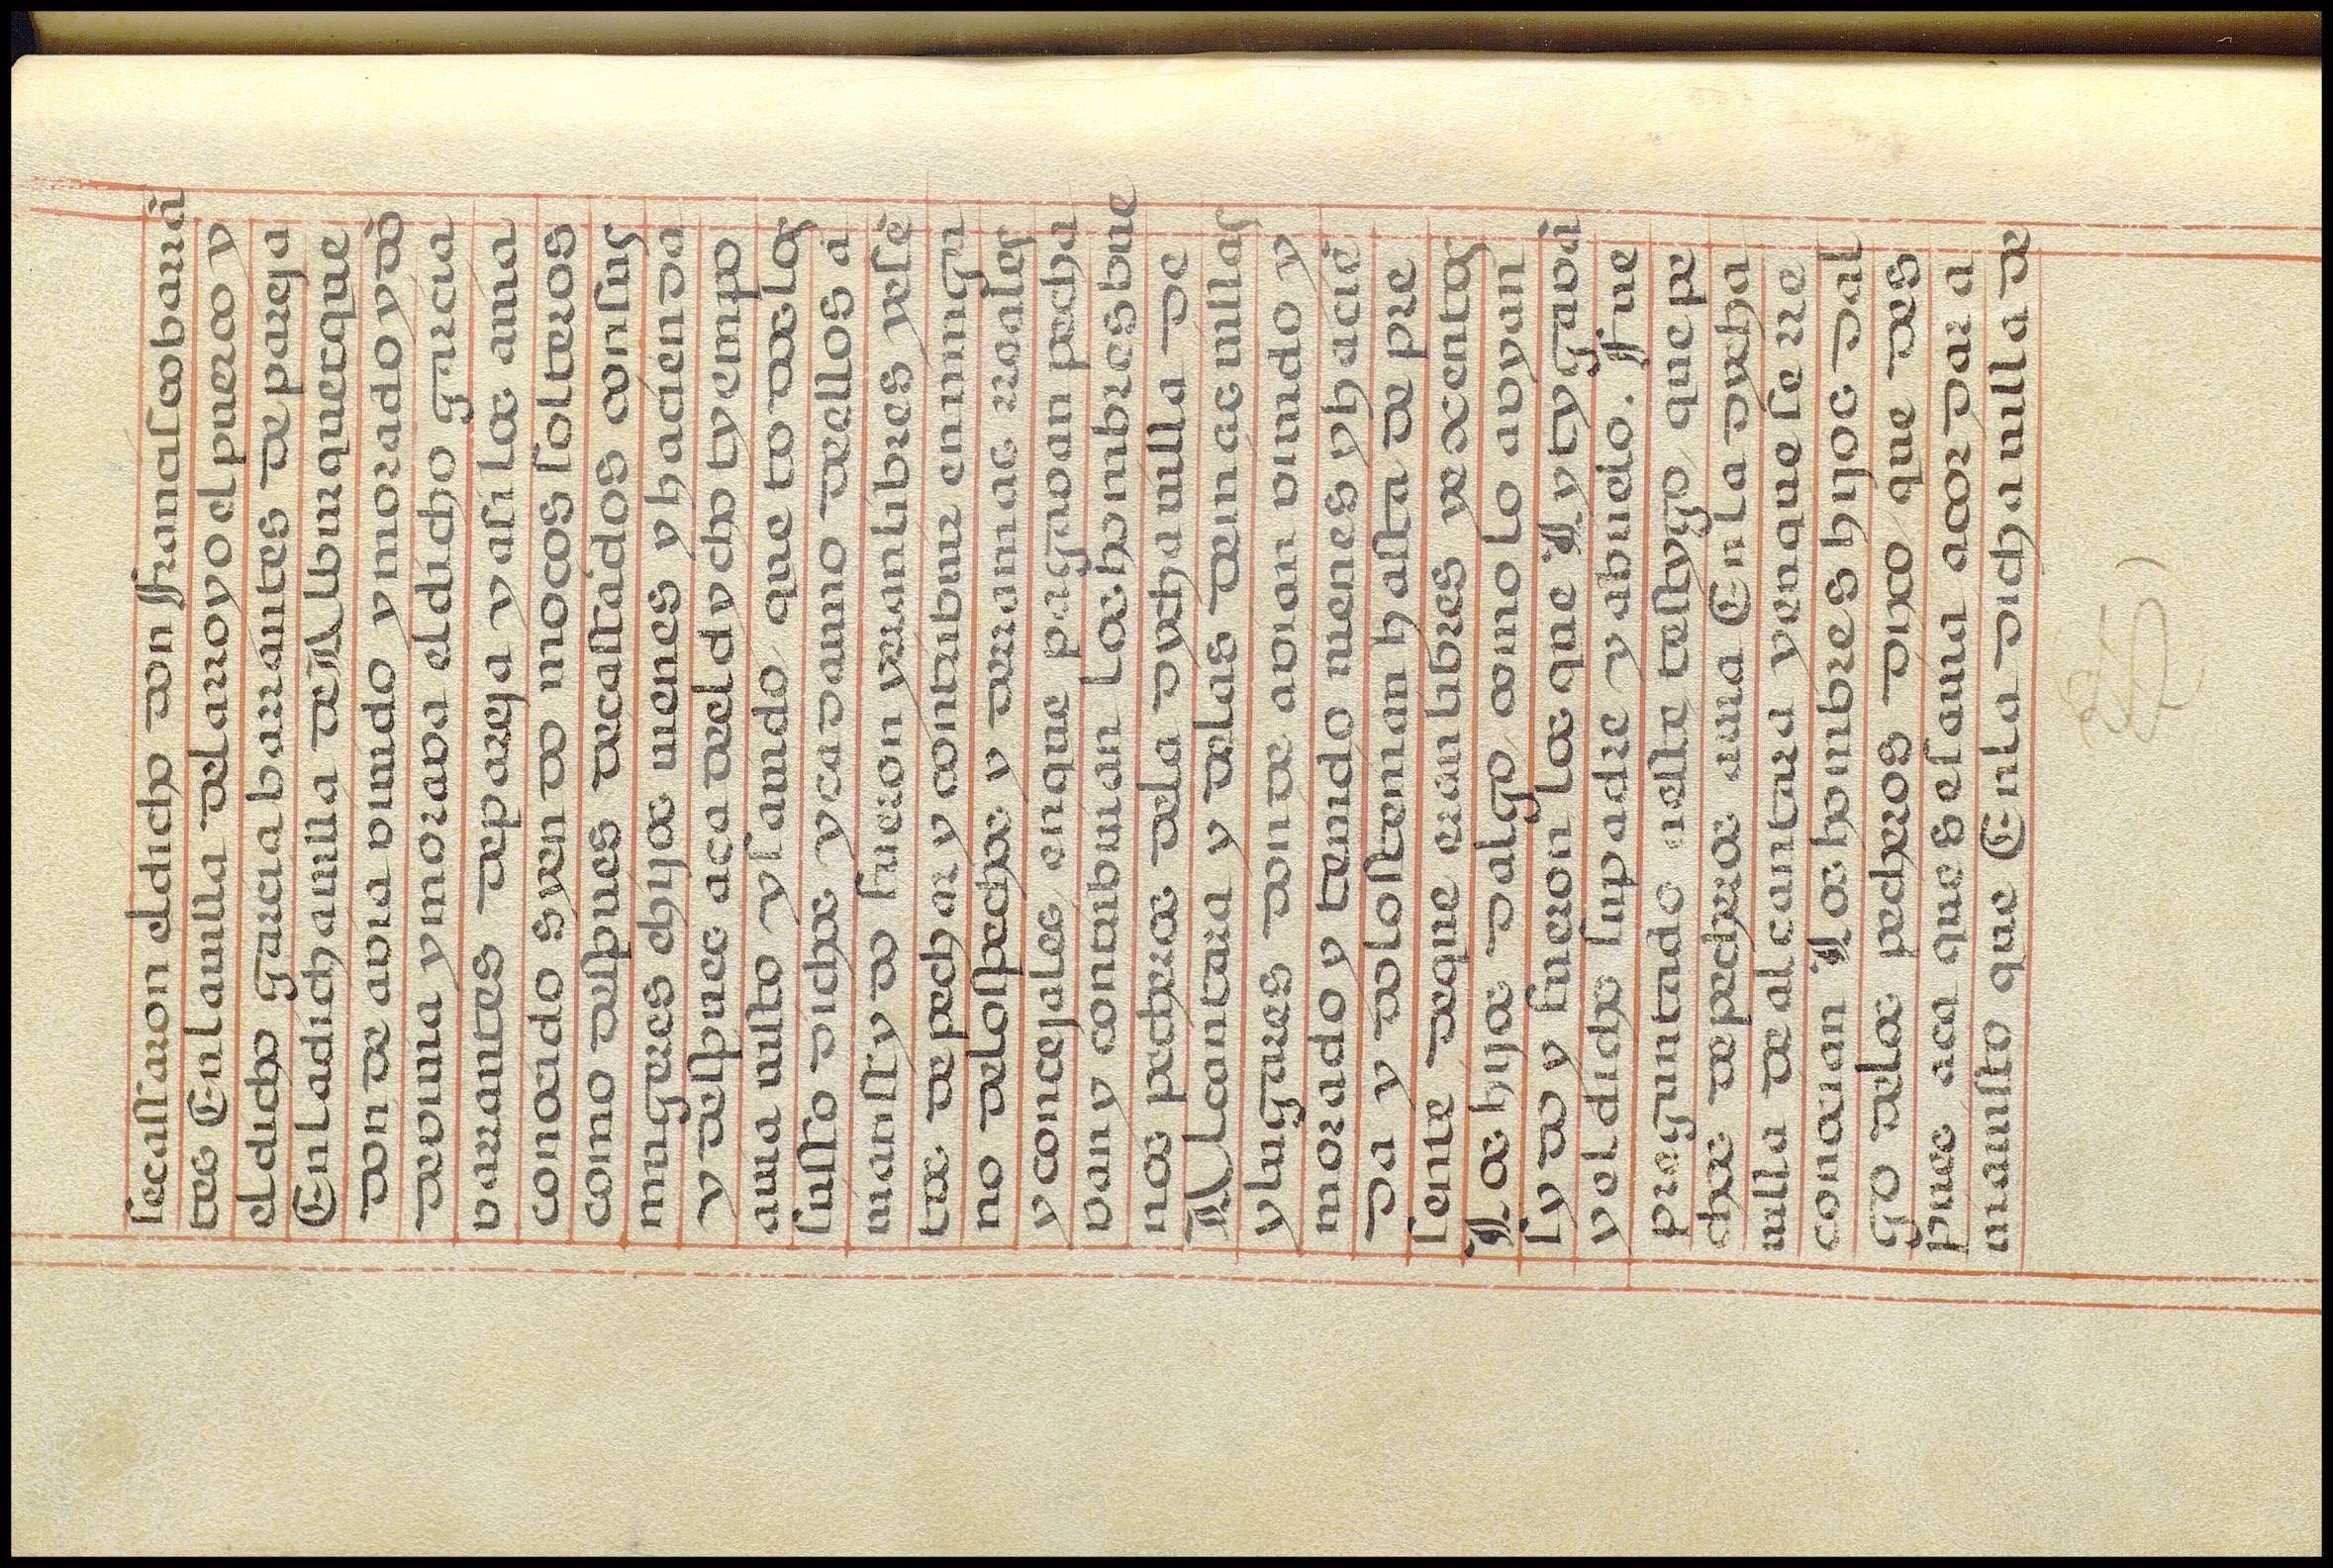 secassaron el dicho don Francisco barrã
tes En la uilla del arroyo el puerco y
el dicho garcia barrantes de pareja
En la dicha uilla de Alburquerque
donde avia viuido y morado y dõ
de viuia y morava el dicho garcia
varrantes de pareja y asi los auia
conoçido syendo moços solteros
como despues de casados con sus
mugeres e hijos uienes y hacienda
y despues aca del dycho tyempo
auia uisto y sauido que todos los
susso dichos y cada uno dellos a
uian sydo y fueron y eran libres y esẽ
tos de pechar y contribuir en ninguno
no de los pechos y derramas rreales
y concejales en que pagavan pecha
van y contribuian Los hombres bue
nos pecheros de la dycha uilla de
Alcantara y de las demas uillas
y lugares donde avian viuido y
morado y tenido uienes y haciẽ
da y do los tenian hasta de pre
sente de que eran libres y exentos
Los hijos dalgo como lo avyan
sydo y fueron los que lytygavã
y el dicho su padre y abuelo. Fue
preguntado este testygo que pe
chos de pecheros auia En la dycha
uilla de alcantara y en que se rre
conocian Los hombres hijos dal
go de los pecheros dixo que des
pues aca que se sauia acordar a
uia uisto que En la dicha uilla de